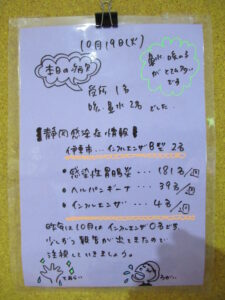 10月19日(火)
本日の病欠
発熱 1名
咳・鼻水 2名 でした
鼻水 咳の子
がとても多い
です
静岡感染症情報
伊東市… インフルエンザB型 2名
・感染性胃腸炎… 181名/週
・ヘルパンギーナ… 39名/週
・インフルエンザ… 4名/週
昨年は10月は インフルエンザ 0名です
少しずつ 報告が出てきたので
注視していきましょう。
手洗い
うがい